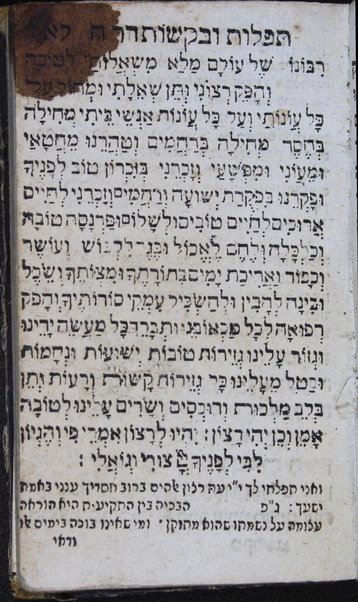 תפלות ובקשות דר ה לא
רבונו של עולם מלא משאלותי לטובה
והפק רצוני ותן שאלתי ומחול על
כל עונותי ועל כל עונות אנשי ביתי מחילה
בחסד מחילה ברחמים וטהרנו מחטאי
ומעוני ומפשעי וזכרני בזכרון טוב לפניך
ופקדנו בפקדת ישועה ורחמים וזכרני לחיים
ארוכים לחיים טובים ולשלום ופרנסה טובה
וכלכלה ולחם לאכול ובגד ללבוש ועושר
וכבוד ואריכת ימים בתורתך ומצותך ושכל
ובינה להבין ולהשכיל עמקי סודותיך והפק
רפואה לכל מכאובני ותברך כל מעשה ידינו
וגזור עלינו גזירות טובות ישועות ונחמות
ובטל מעלינו כל גזירות קשות ורעות ותן
בלב מלכות ורוכסים ושרים עלינו לטובה
אמן וכן יהי רצון: יהיו לרצון אמרי פי והגיון
לבי לפניך צורי וגואלי :
ואני תפלתי לך י"י עת רצון אלהים ברוב חסדיך ענני באמת
ישעך: ג"פ הבכיה בין התקיעות היא הוראה
עלומה על נשמתו שהוא מתוקן ומי שאינו בוכה בימים של
ודאי